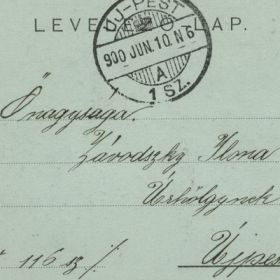 LEVE LAP.
ÚJ-PEST
900 JUN. 10. N 6
A
1 SZ.
Őnagysága.
Závodszky Ilona
Úrhölgynek
Újpe
116 sz /.